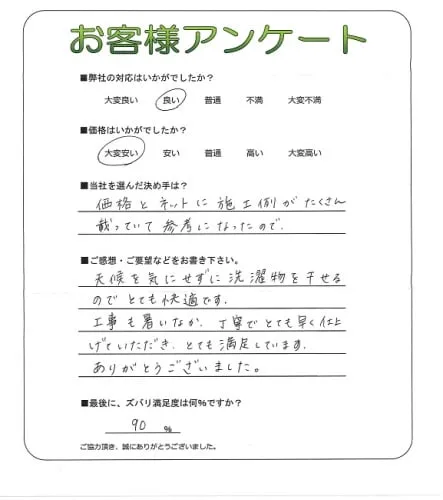 お客様アンケート
■弊社の対応はいかがでしたか？
大変良い 良い 普通 不満 大変不満
■価格はいかがでしたか？
大変安い 安い 普通 高い 大変高い
■当社を選んだ決め手は？
価格とネットに施工例がたくさん
載っていて参考になったので。
■ご感想・ご要望などをお書き下さい。
天候を気にせずに洗濯物を干せる
のでとても快適です。
工事も暑いなか、丁寧でとても早く仕上
げていただき、とても満足しています。
ありがとうございました。
■最後に、ズバリ満足度は何％ですか？
90 ％
ご協力頂き、誠にありがとうございました。